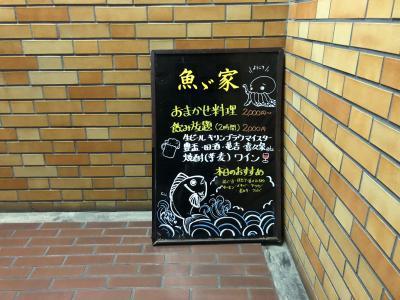 ようこそ
魚が家
おまかせ料理 2,000円~
飲み放題(2時間) 2,000円
生ビール キリンブラウマイスター
豊盃・田酒・亀吉・喜久泉etc
焼酎(芋麦)ワイン
本日のおすすめ